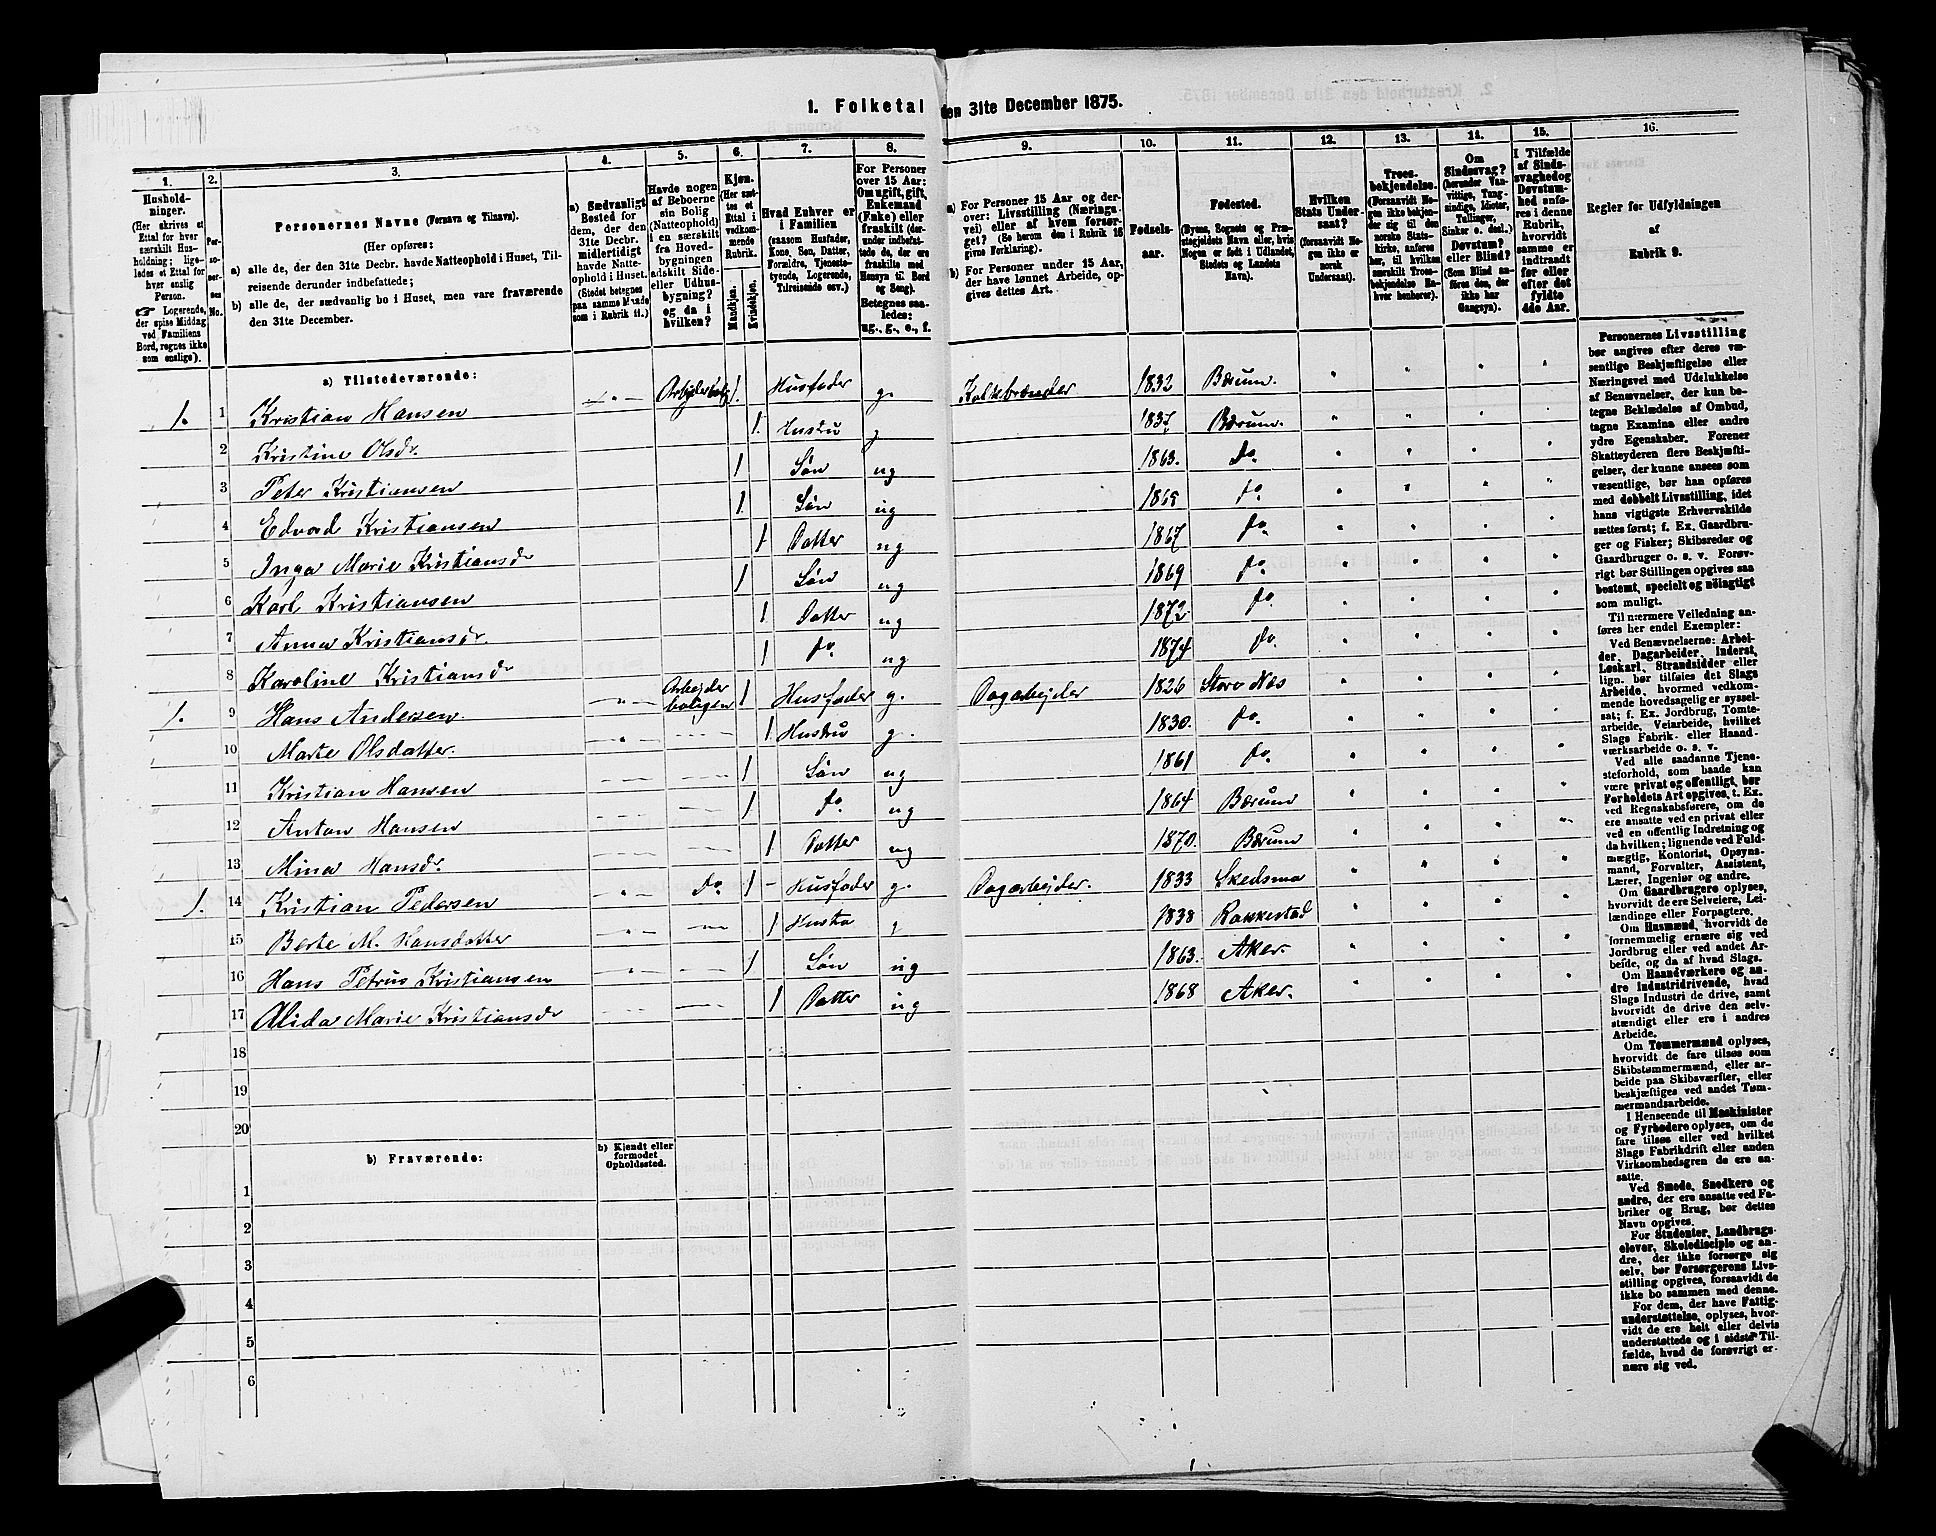 1. Folketal den 31te December 1875.
1. 2. 3. 4. 5. 6. 7. 8. 9. 10. 11. 12. 13. 14. 15. 16.
Husholdninger.
(Her skrives et
Ettal for hver
særskilt Husholdning;
ligeledes et Ettal for
hver enslig
Person.
☞ Logerende,
der spise Middag
ved Familiens
Bord, regnes ikke
som enslige).
Personernes No.
Personernes Navne (Fornavn og Tilnavn).
(Her opføres:
a) alle de, der den 31te Decbr. havde Natteophold i Huset, Tilreisende derunder indbefattede;
b) alle de, der sædvanlig bo i Huset, men vare fraværende
den 31te December.
a) Sædvanligt
Bested for
dem, der den
31te Decbr.
midlertidigt
havde Natteophold i Huset.
(Stedet betegnes
paa samme Maade
som i Rubrik 11.)
Havde nogen
af Beboerne
sin Bolig
(Natteophold)
i en særskilt
fra Hovedbygningen
adskilt Side-
eller Udhusbygning?
og da i
hvilken?
Kjøn.
(Her sættes et
Ettal i
vedkommende
Rubrik.
Mandkjøn.
Kvindekjøn.
Hvad Enhver er
i Familien
(saasom Husfader,
Kone, Søn, Datter,
Forældre, Tjenestetyende, Logerende,
Tilreisende osv.)
For Personer
over 15 Aar:
Om ugift, gift,
Enkemand
(Enke) eller
fraskilt (derunder indbefattede, de, der ere
fraskilte med
Hensyn til Bord
og Seng).
Betegnes saaledes:
ug., g., e., f.
a) For Personer 15 Aar og derover: Livsstilling (Næringsvei) eller af hvem forsørget? (Se herom den i Rubrik 16
givne Forklaring).
b) For Personer under 15 Aar,
der have lønnet Arbeide, opgives dettes Art.
Fødselsaar.
Fødested.
(Byens, Sognets og Præstegjeldets Navn eller, hvis
Nogen er født i Udlandet,
Stedets og Landets
Navn).
Hvilken
Stats Undersaat?
(forsaavidt Nogen ikke er
norsk
Undersaat).
Troesbekjendelse.
(Forsaavidt Nogen ikke bekjender sig til den
norske Statskirke, anføres
her, til hvilken
særskilt Troesbekjendelse Enhver henhører).
Om
Sindssvag?
(herunder Vanvittige, Tungsindige, Idioter,
Tullinger,
Sinker o. desl.)
Døvstum?
eller Blind?
(Som Blind anføres den, der
ikke har
Gangsyn).
I Tilfælde
af Sindssvaghed og
Døvstumhed anføres i denne
Rubrik,
hvorvidt
samme er
indtraadt
før eller
efter det
fyldte
4de Aar.
Regler for Udfyldningen
af
Rubrik 9.
a) Tilstedeværende:
1. 1 Kristian Hansen " Arbejderbolig 1. Husfader g. Kalkbrænder 1832 Bærum. " " " "
2 Kristine Olsdr. 1. Hustru g 1837 Bærum. " " "
3 Peter Kristiansen 1 Søn ug 1863. do. " " " "
4 Edvard Kristiansen 1. Søn ug 1865 do. " " " "
5 Inga Marie Kristiansdr 1 Datter ug 1867 do. " " " "
6 Karl Kristiansen 1 Søn ug 1869 do. " " " "
7 Anna Kristiansdr. 1 Datter ug 1872 do. " " " "
8 Karoline Kristiansdr 1 do. ug 1874 do. " " " "
1. 9 Hans Andersen. " Arbejder boligen 1 Husfader g. Dagarbejder 1826 Store Næs " " " "
10 Marte Olsdatter. " 1. Hustru g. 1830. do. " " " "
11 Kristian Hansen 1 Søn ug 1861 do. " " " "
12 Anton Hansen 1 do. ug 1864 Bærum " " " "
13 Mina Hansdr. 1 Datter ug 1870. Bærum " " " "
1. 14 Kristian Pedersen " do. 1 Husfader g. Dagarbejder. 1833 Skedsmo " " "
15 Berte M. Hansdatter " 1 Hustro g 1838 Rakkestad " " " "
16 Hans Petrus Kristiansen " 1 Søn ug 1863. Aker. " " " "
17 Alida Marie Kristiansdr 1 Datter ug 1868 Aker. " " " "
18
19
20
b) Fraværende:
b) Kjendt eller
formodet
Opholdssted.
1
2
3
4
5
6
Personernes Livsstilling
bør angives efter deres væsentlige Beskjæftigelse eller
Næringsvei med Udelukkelse
af Benævnelser, der kun betegne Beklædelse af Ombud,
tagne Examina eller andre
ydre Egenskaber. Forener
Skatteyderen flere Beskjæftigelser, der kunne ansees som
væsentlige, bør han opføres
med dobbelt Livsstilling, idet
hans vigtigste Erhvervskilde
sættes først; f. Ex. Gaardbruger og Fisker; Skibsreder og
Gaardbruger o. s. v. Forøvrigt bør Stillingen opgives saa
bestemt, specielt og nøiagtigt
som muligt.
Til nærmere Veiledning anføres her endel Exempler:
Ved Benævnelserne: Arbeider, Dagarbeider, Inderst,
Løskarl, Strandsidder eller
lign. bør tilføies det Slags
Arbeide, hvormed vedkommende hovedsagelig er sysselsat; f. Ex. Jordbrug, Tomtearbeide, Veiarbeide, hvilket
Slags Fabrik- eller Haandværksarbeide o. s. v.
Ved alle saadanne Tjenesteforhold, som baade kan
være privat og offentligt, bør
Forholdets Art opgives, t. Ex.
ved Regnskabsførere, om de
ere ansatte ved en privat eller
ved en offentlig Indretning og
da hvilken; lignende ved Fuldmægtig, Kontorist, Opsynsmand, Forvalter, Assistent,
Lærer, Ingeniør og andre.
Om Gaardbrugere oplyses,
hvorvidt de ere Selveiere, Leilændinge eller Forpagtere.
Om Husmænd, hvorvidt de
fornemmelig ernære sig ved
Jordbrug eller ved andet Arbeide, og da af hvad Slags.
Om Haandværkere og andre Industridrivende, hvad
Slags Industri de drive, samt
hvorvidt de drive den selvstændigt eller ere i andres
Arbeide.
Om Tømmermænd oplyses,
hvorvidt de fare tilsøs som
Skibstømmermænd, eller arbeide paa Skibsværfter, eller
beskjæftiges ved andet Tømmermandsarbeide.
I Henseende til Maskinister
og Fyrbødere oplyses, om de
fare tilsøs eller ved hvilket
Slags Fabrikdrift eller anden
Virksomhedsgren de ere ansatte.
Ved Smede, Snedkere og
andre, der ere ansatte ved Fabriker og Brug, bør dettes
Navn opgives.
For Studenter, Landbrugselever, Skoledisciple og andre, der ikke forsørge sig
selv, bør Forsørgerens Livsstilling opgives, forsaavidt de
ikke bo sammen med denne.
For dem, der have Fattigunderstøttelse, oplyses, hvorvidt de ere helt eller delvis
understøttede og i sidste Tilfælde, hvad de forøvrigt ernære sig ved.